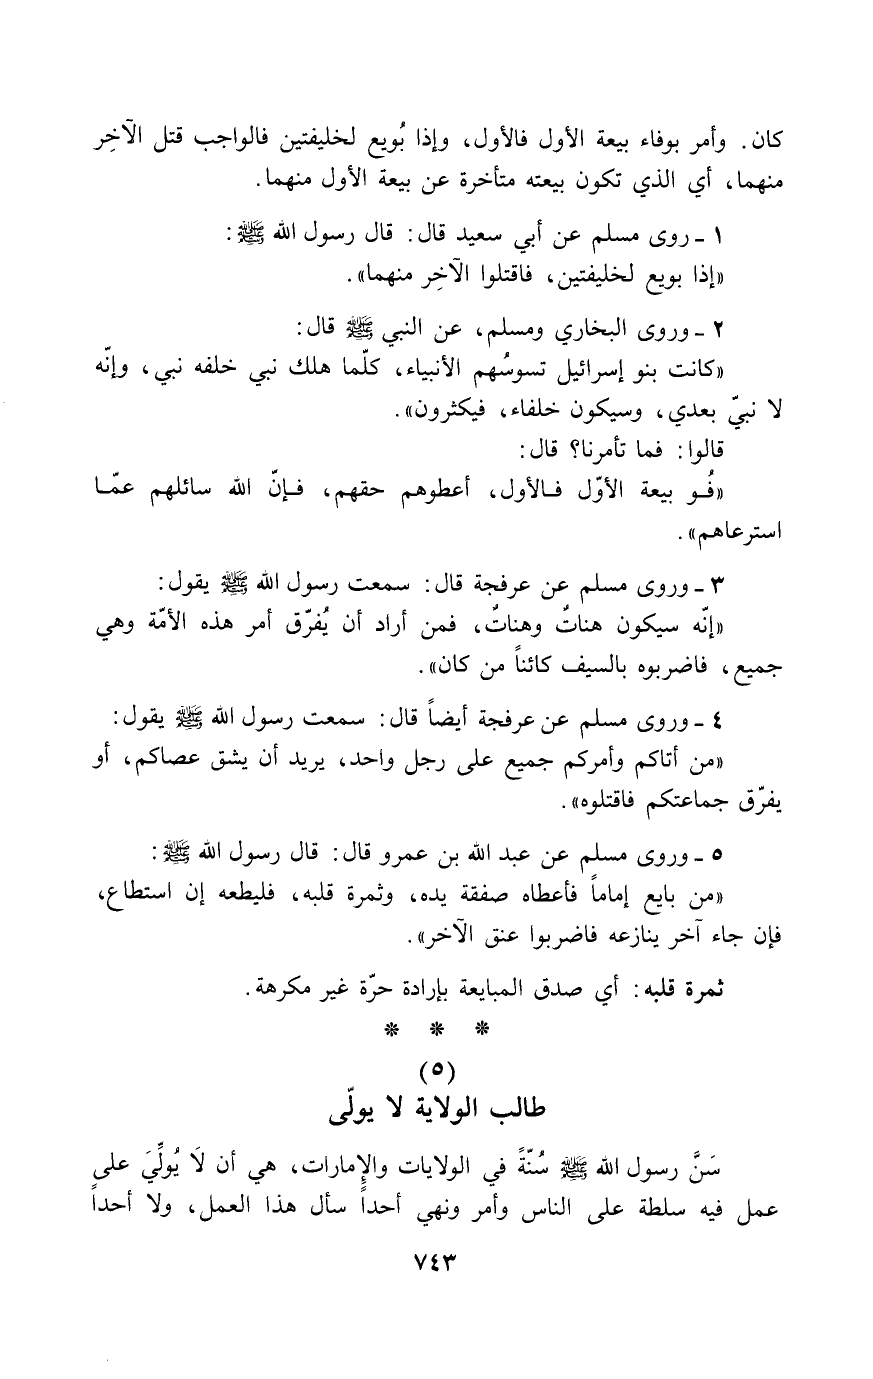 كان. وأمر بوفاء بيعة الأول فالأول، وإذا بُويع لخليفتين فالواجب قتل الآخِر
منهما، أي الذي تكون بيعته متأخرة عن بيعة الأول منهما.
١ ـ روى مسلم عن أبي سعيد قال: قال رسول الله ﷺ:
«إذا بويع لخليفتين، فاقتلوا الآخِر منهما».
٢ ـ وروى البخاري ومسلم، عن النبي ﷺ قال:
«كانت بنو إسرائيل تسوسُهم الأنبياء، كلّما هلك نبي خلفه نبي، وإنّه
لا نبيّ بعدي، وسيكون خلفاء، فيكثرون».
قالوا: فما تأمرنا؟ قال:
«فُـو بيعة الأوّل فـالأول، أعطوهم حقهم، فـإنّ الله سائلهم عمّـا
استرعاهم».
٣ ـ وروى مسلم عن عرفجة قال: سمعت رسول الله ﷺ يقول:
«إنّه سيكون هناتٌ وهناتٌ، فمن أراد أن يُفرّق أمر هذه الأمّة وهي
جميع، فاضربوه بالسيف كائناً من كان».
٤ ـ وروى مسلم عن عرفجة أيضاً قال: سمعت رسول الله ﷺ يقول:
«من أتاكم وأمركم جميع على رجل واحد، يريد أن يشق عصاكم، أو
يفرّق جماعتكم فاقتلوه».
٥ ـ وروى مسلم عن عبد الله بن عمرو قال: قال رسول الله ﷺ:
«من بايع إماماً فأعطاه صفقة يده، وثمرة قلبه، فليطعه إن استطاع،
فإن جاء آخر ينازعه فاضربوا عنق الآخر».
ثمرة قلبه: أي صدق المبايعة بإرادة حرّة غير مكرهة.
* * *
(٥)
طالب الولاية لا يولّى
سَنَّ رسول الله ﷺ سُنّةً في الولايات والإمارات، هي أن لَا يُولِّيَ على
عمل فيه سلطة على الناس وأمر ونهي أحداً سأل هذا العمل، ولا أحداً
٧٤٣